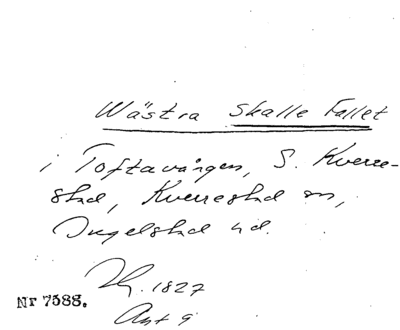 Wästra Skalle Fallet
i Toftavången, S. Kverre-
stad, Kverrestad sn,
Ingelstad hd.
1827
Nr 7588.
Akt 9